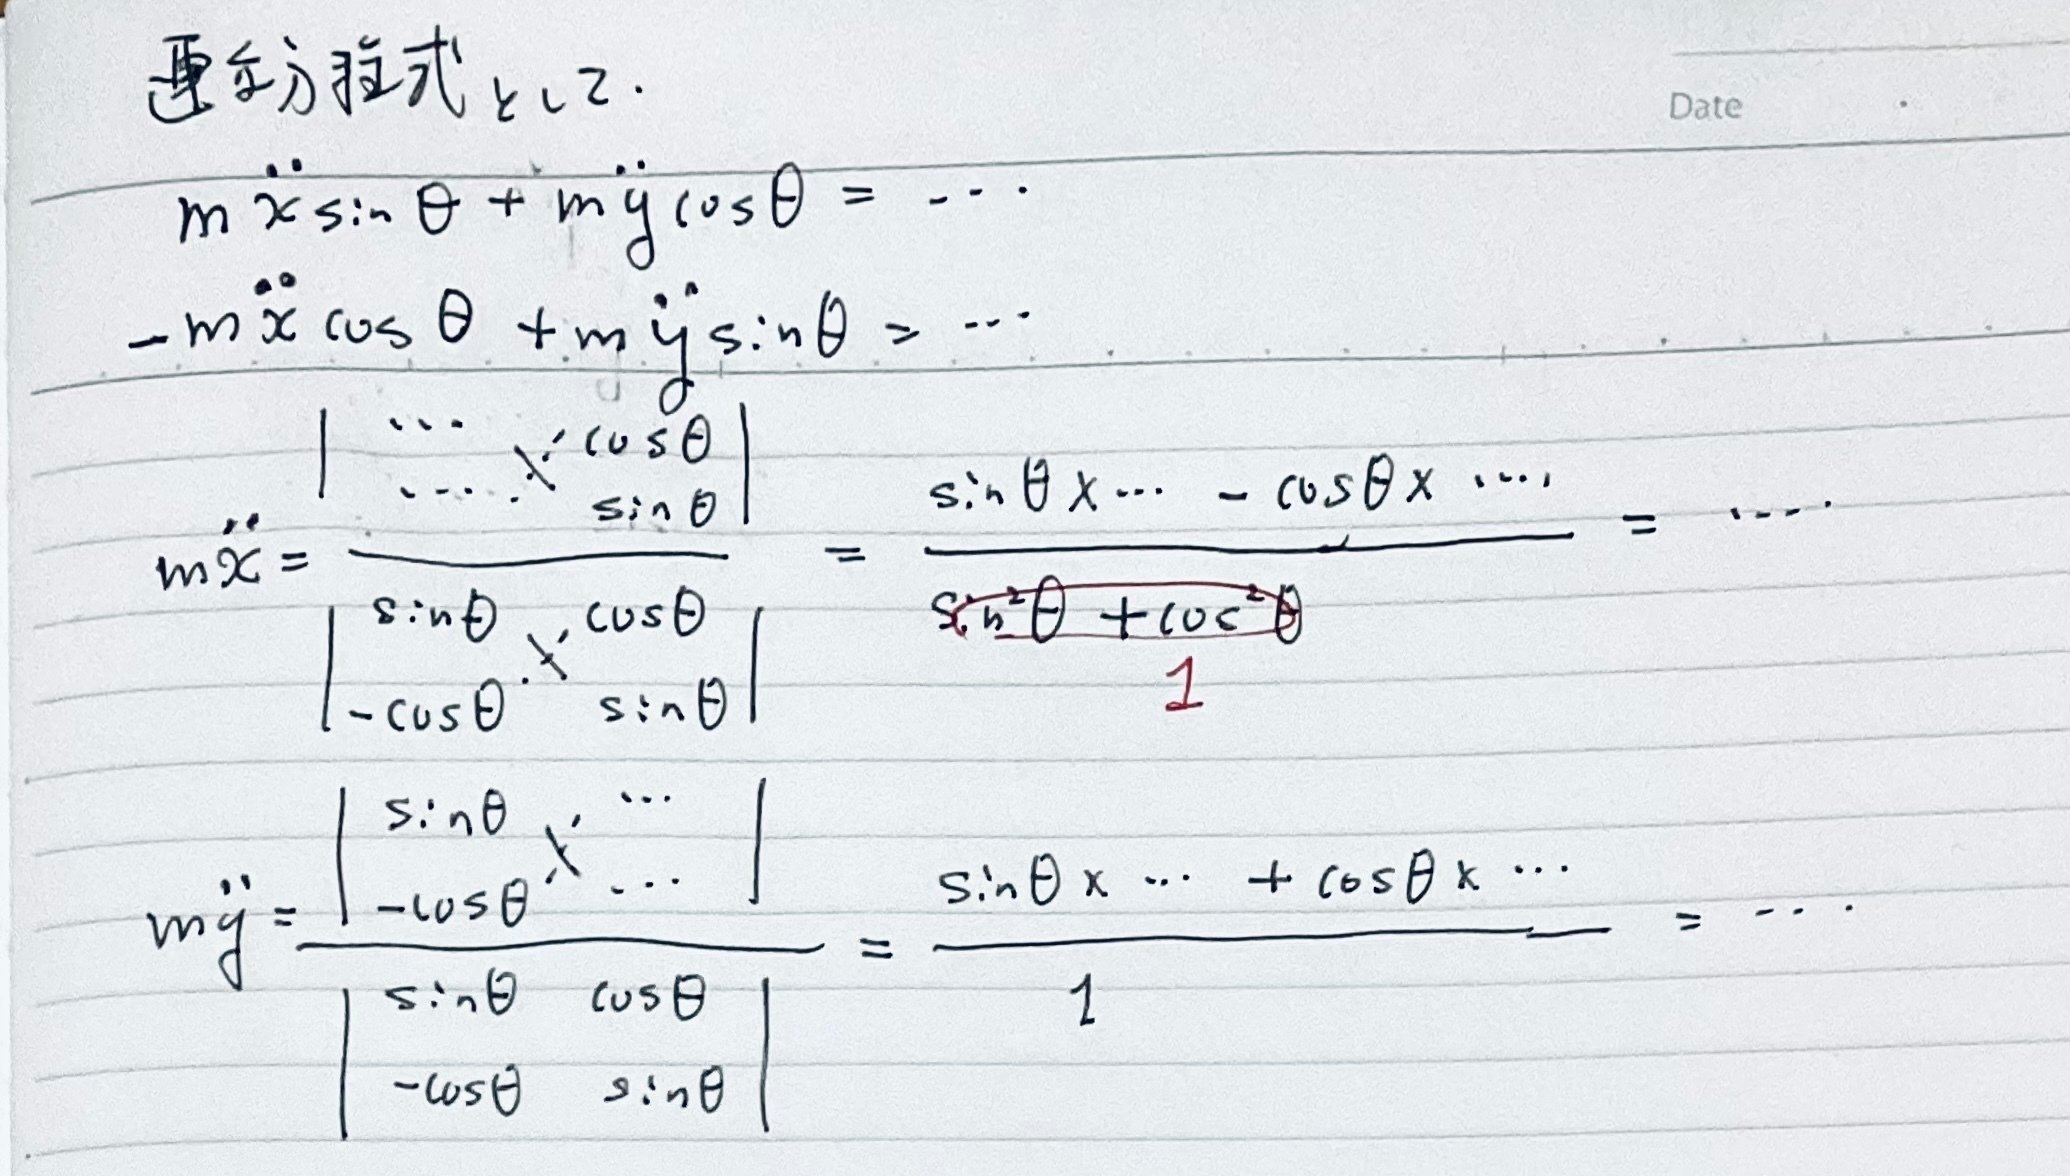 連立方程式として.
Date
mẍ sinθ + mÿ cosθ = ...
-mẍ cosθ + mÿ sinθ = ...
mẍ = | ... cosθ ; ... sinθ | / | sinθ cosθ ; -cosθ sinθ | = (sinθ × ... - cosθ × ...) / (sin²θ + cos²θ) = ...
1
mÿ = | sinθ ... ; -cosθ ... | / | sinθ cosθ ; -cosθ sinθ | = (sinθ × ... + cosθ × ...) / 1 = ...